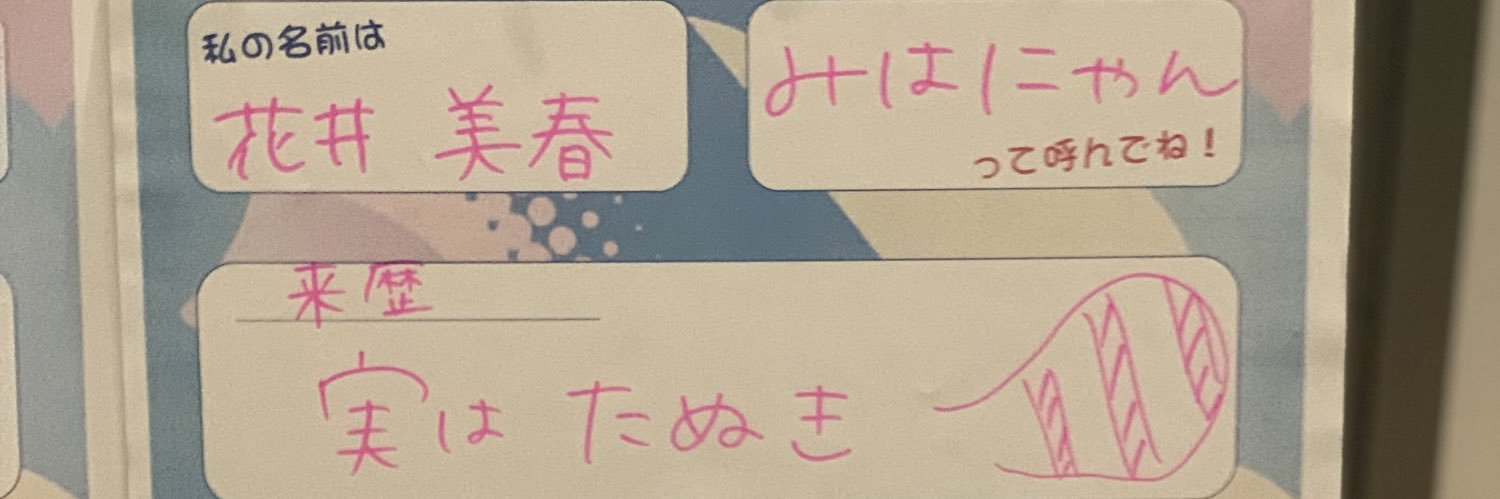 私の名前は
花井 美春
みはにゃん
って呼んでね!
来歴
実は たぬき